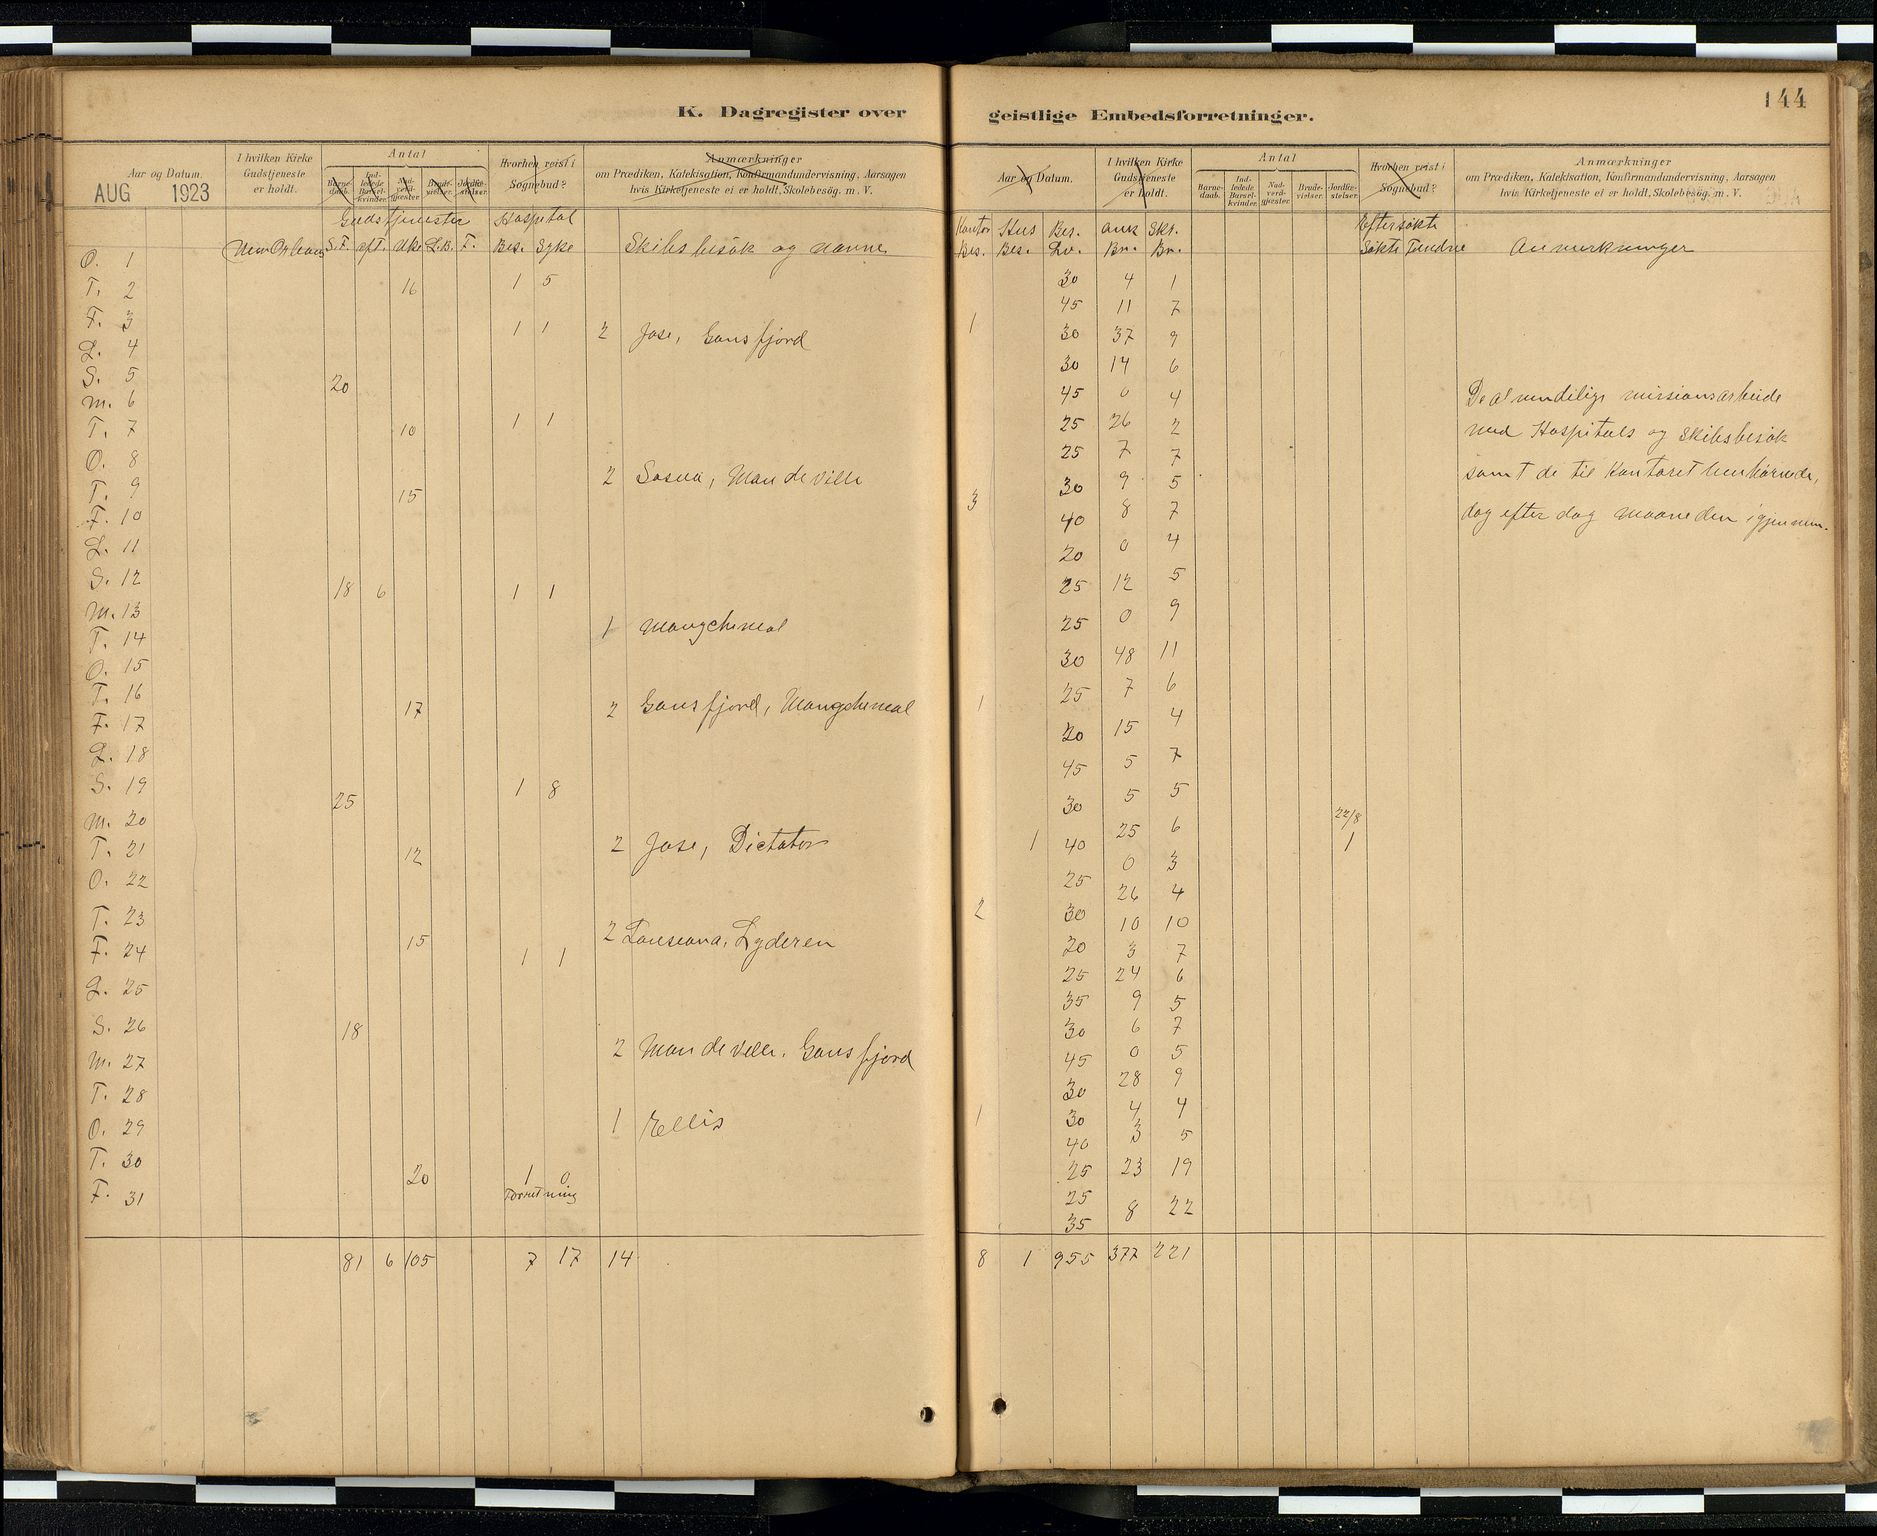 K. Dagregister over geistlige Embedsforretninger.
144
Aar og Datum.
I hvilken Kirke Gudstjeneste er holdt.
Antal
Barnedaab.
Indledede Barselkvinder.
Nadverdgjæster.
Brudevielser.
Jordfæstelser.
Hvorhen reist i Sognebud?
Anmærkninger
om Prædiken, Katekisation, Konfirmandundervisning, Aarsagen
hvis Kirketjeneste ei er holdt, Skolebesøg. m. V.
AUG 1923
Gudstjenester Hospital
New Orleans S. F. eft. Uke L.B. F. Bes. Syke Skibsbesøk og navne
O. 1
T. 2 16 1 5
F. 3
L. 4 1 1 2 Jose, Gansfjord
S. 5 20
M. 6
T. 7 10 1 1
O. 8
T. 9 15 2 Sosua, Mandeville
F. 10
L. 11
S. 12 18 6 1 1
M. 13
T. 14 1 Mangcheneal
O. 15
T. 16 17 2 Gansfjord, Mangcheneal
F. 17
L. 18
S. 19 25 1 8
M. 20
T. 21 12 2 Jose, Dictator
O. 22
T. 23
F. 24 15 1 1 2 Louseana, Lyderen
L. 25
S. 26 18
M. 27 2 Mandeville, Gansfjord
T. 28
O. 29 1 Ellis
T. 30 20 1 0
F. 31 Forretning
81 6 105 7 17 14
Aar og Datum.
I hvilken Kirke Gudstjeneste er holdt.
Antal
Barnedaab.
Indledede Barselkvinder.
Nadverdgjæster.
Brudevielser.
Jordfæstelser.
Hvorhen reist i Sognebud?
Anmærkninger
om Prædiken, Katekisation, Konfirmandundervisning, Aarsagen
hvis Kirketjeneste ei er holdt, Skolebesøg. m. V.
Kontor Hus Bes. Ank Skr. Eftersøkte
Bes. Bes. Lv. Br. Br. Søkte Fundne Anmerkninger
30 4 1
45 11 7
1 30 37 9
30 14 6
45 0 4
25 26 2
25 7 7
30 9 5
3 40 8 7
20 0 4
25 12 5
25 0 9
30 48 11
1 25 7 6
20 15 4
45 5 7
30 5 5 22/8
1 40 25 6 1
25 0 3
2 30 26 4
20 10 10
25 3 7
35 24 6
30 9 5
45 6 7
30 0 5
1 30 28 9
40 4 4
25 3 5
25 23 19
35 8 22
8 1 955 377 221
De almindelige missionsarbeide
med Hospitals og Skibsbesøk
samt de til Kontoret henhørende,
dag efter dag maaneden igjennem.